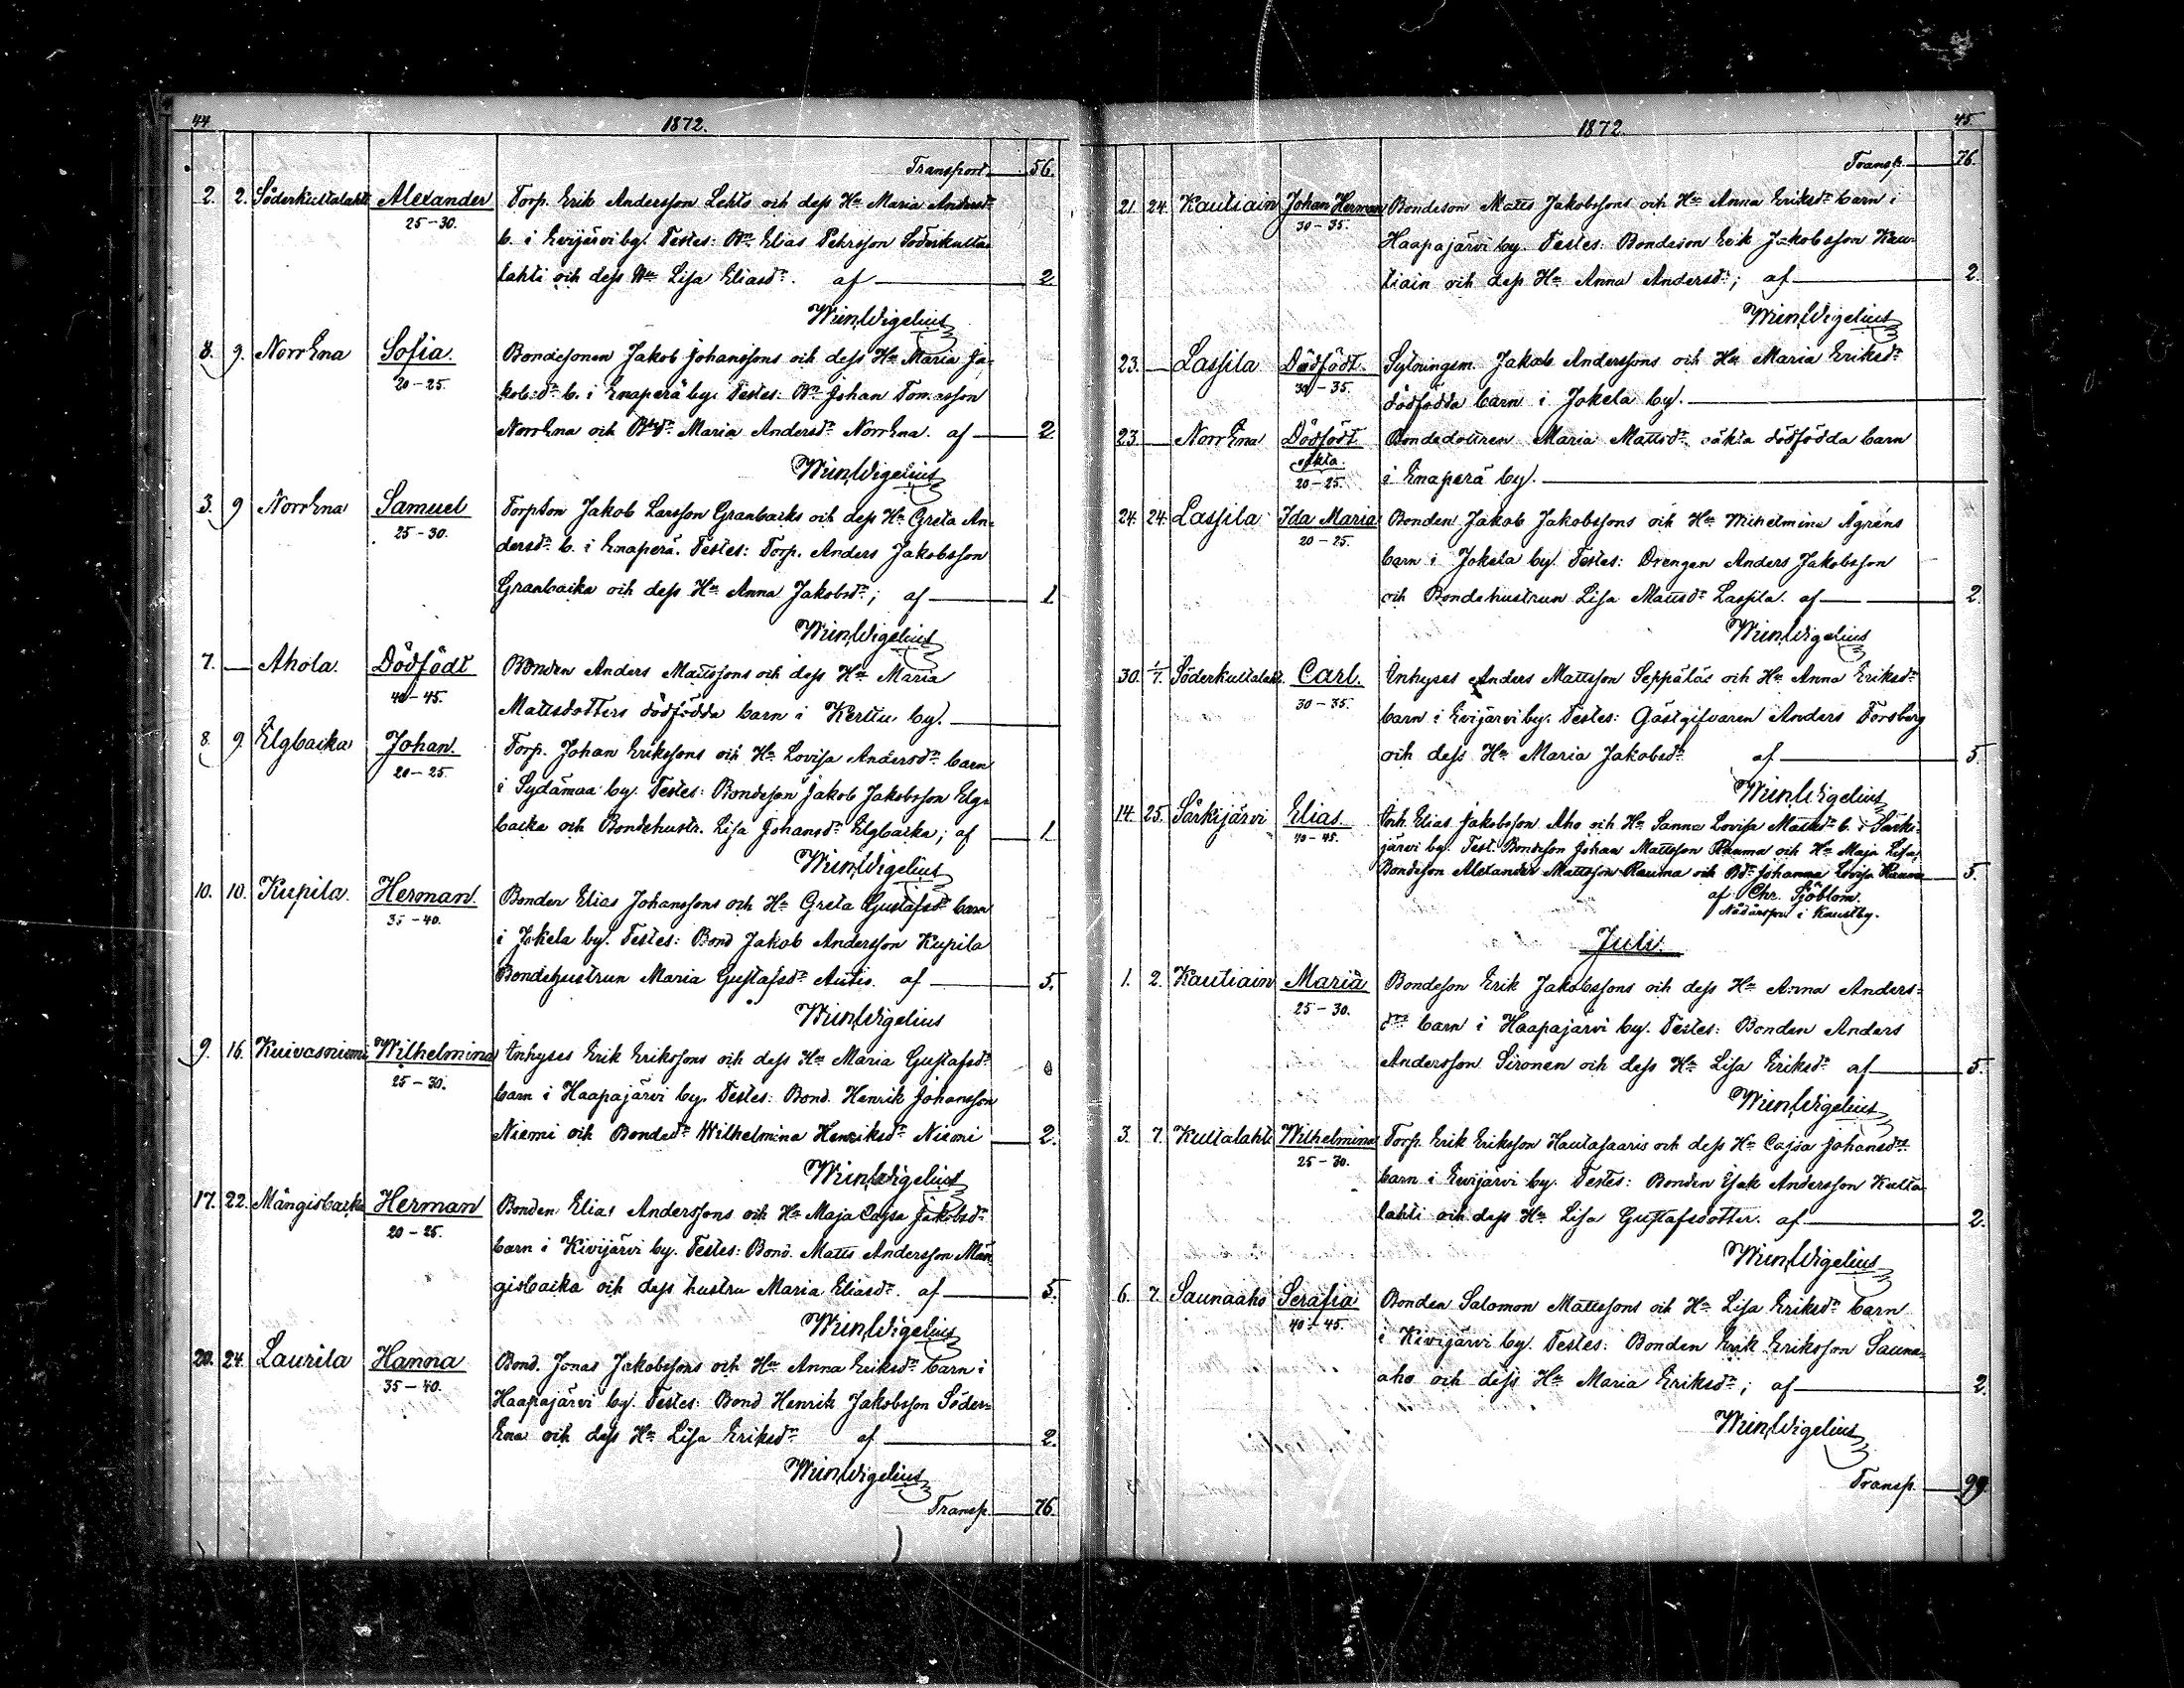 44
1872.
Transport 56.
2. 2. Söderkultalahti Alexander Torp. Erik Andersson Lehto och dess Hu Maria Andersdr
25-30. b. i Evijärvi by. Testes: Bn Elias Pehrsson Söderkulta-
lahti och dess Hu Lisa Eliasdr. af 2.
Wm Wigelius
8. 9. NorrEna Sofia. Bondesonen Jakob Johanssons och dess Hu Maria Ja-
20-25. kobsdr b. i Enaperä by. Testes: Bn Johan Tomasson
NorrEna och Maria Andersdr NorrEna. af 2
Wm Wigelius
3. 9 NorrEna Samuel Torpson Jakob Larsson Granbacks och dess Hu Greta An-
25-30. dersdr b. i Enaperä. Testes: Torp. Anders Jakobsson
Granbacka och dess Hu Anna Jakobsdr; af 1
Wm Wigelius
7. — Ahola. Dödfödt Bonden Anders Mattssons och dess Hu Maria
40-45. Mattsdotters dödfödda barn i Kerttu by.
8. 9. Elgbacka Johan. Torp. Johan Erikssons och Hu Lovisa Andersdr barn
20-25. i Sydämaa by. Testes: Bondeson Jakob Jakobsson Elg-
backa och Bondehustr. Lisa Johansdr Elgbacka; af 1.
Wm Wigelius
10. 10. Kupila. Herman. Bonden Elias Johanssons och Hu Greta Gustafsdr barn
35-40. i Jokela by. Testes: Bond Jakob Andersson Kupila
Bondehustrun Maria Gustafsdr Autio. af 5.
Wm Wigelius
9. 16. Kuivasniemi Wilhelmina Inhyses Erik Erikssons och dess Hu Maria Gustafsdr
25-30. barn i Haapajärvi by. Testes: Bond. Henrik Johansson
Niemi och Bondedr Wilhelmina Henriksdr Niemi 2.
Wm Wigelius
17. 22. Mångisbacka Herman Bonden Elias Anderssons och Hu Maja Cajsa Jakobsdr
20-25. barn i Kivijärvi by. Testes: Bond. Matts Andersson Mån-
gisbacka och dess hustru Maria Eliasdr. af 5.
Wm Wigelius
20. 24. Laurila Hanna Bond. Jonas Jakobssons och Hu Anna Eriksdr barn i
35-40. Haapajärvi by. Testes: Bond Henrik Jakobsson Söder-
Ena och dess Hu Lisa Eriksdr af 2.
Wm Wigelius
Transp. 76.
45.
1872
Transp. 76.
21. 24. Kautiain Johan Herman Bondeson Matts Jakobssons och Hu Anna Eriksdr barn i
30-35. Haapajärvi by. Testes: Bondeson Erik Jakobsson Kau-
tiain och dess Hu Anna Andersdr; af 2.
Wm Wigelius
23. — Lassila Dödfödt. Sytningsm. Jakob Anderssons och Hu Maria Eriksdr
30-35. dödfödda barn i Jokela by.
23. — NorrEna Dödfödt Bondedottren Maria Mattsdr oäkta dödfödda barn
oäkta.
20-25. i Enaperä by.
24. 24. Lassila Ida Maria Bonden Jakob Jakobssons och Hu Wilhelmina Ågrens
20-25. barn i Jokela by. Testes: Drengen Anders Jakobsson
och Bondehustrun Lisa Mattsdr Lassila. af 2.
Wm Wigelius
30. 1/7. Söderkultalaht. Carl. Inhyses Anders Mattsson Seppäläs och Hu Anna Eriksdr
30-35. barn i Evijärvi by. Testes: Gästgifvaren Anders Forsberg
och dess Hu Maria Jakobsdr af 5.
Wm Wigelius
14. 25. Särkijärvi Elias. Inh. Elias Jakobsson Aho och Hu Sanna Lovisa Mattsdr b. i Särki-
40-45. järvi by. Test. Bondeson Johan Mattsson Rauma och Hu Maja Lisa,
Bondeson Alexander Mattsson Rauma och Bdr Johanna Lovisa Rauma 5.
af Chr. Sjöblom.
Nådårspr. i Kaustby.
Juli.
1. 2. Kautiain Maria Bondeson Erik Jakobssons och dess Hu Anna Anders-
25-30. drs barn i Haapajärvi by. Testes: Bonden Anders
Andersson Sironen och dess Hu Lisa Eriksdr af 5.
Wm Wigelius
3. 7. Kultalahti Wilhelmina Torp. Erik Eriksson Hautasaaris och dess Hu Cajsa Johansdrs
25-30. barn i Evijärvi by. Testes: Bonden Isak Andersson Kulta-
lahti och dess Hu Lisa Gustafsdotter. af 2.
Wm Wigelius
6. 7. Saunaaho Serafia Bonden Salomon Mattssons och Hu Lisa Eriksdr barn
40-45. i Kivijärvi by. Testes: Bonden Erik Eriksson Sauna-
aho och dess Hu Maria Eriksdr; af 2.
Wm Wigelius
Transp. 99